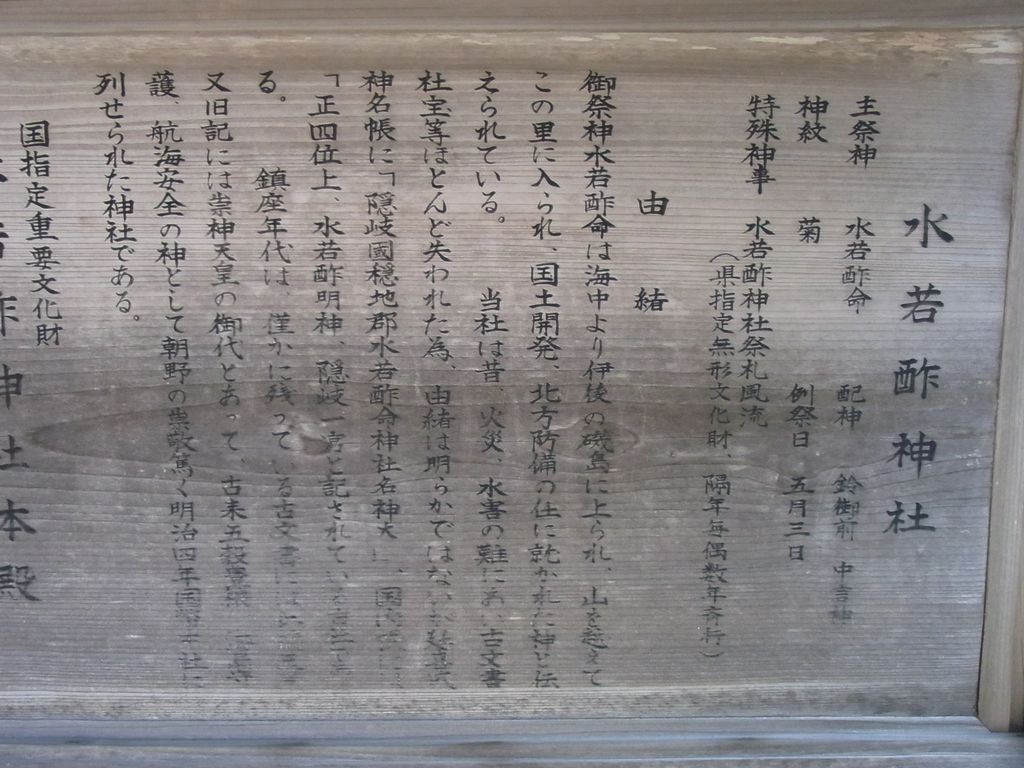 水若酢神社
主祭神 水若酢命 配神 鈴御前 中言神
神紋 菊 例祭日 五月三日
特殊神事 水若酢神社祭礼風流
（県指定無形文化財、隔年毎偶数年斉行）
由緒
御祭神水若酢命は海中より伊後の磯島に上られ、山を越えて
この里に入られ、国土開発、北方防備の任に就かれた神と伝
えられている。 当社は昔、火災、水害の難にあい古文書
社宝等ほとんど失われた為、由緒は明らかではないが延喜式
神名帳に「隠岐國穏地郡水若酢命神社名神大」、国内
「正四位上、水若酢明神、隠岐一宮と記されている
る。 鎮座年代は、僅かに残っている古文書には
又旧記には崇神天皇の御代とあって、古来五穀豊
護、航海安全の神として朝野の崇敬篤く明治四年国幣中社に
列せられた神社である。
国指定重要文化財
水若酢神社本殿